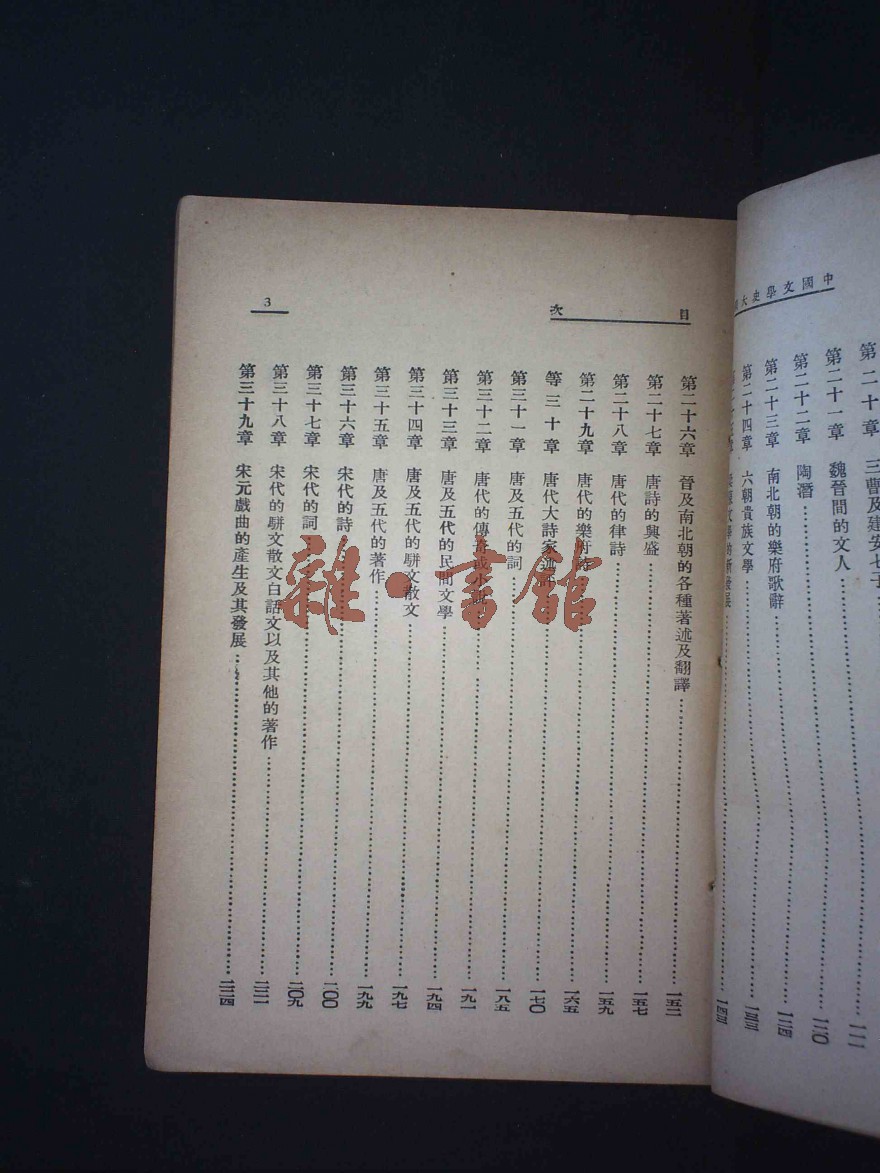 中國文學史大
第二十章 三曹及建安七子 一一一
第二十一章 魏晉間的文人 一二〇
第二十二章 陶潛 一二四
第二十三章 南北朝的樂府歌辭 一三三
第二十四章 六朝貴族文學 一四三
文學的新發展
目次
3
第二十六章 晉及南北朝的各種著述及翻譯 一五二
第二十七章 唐詩的興盛 一五七
第二十八章 唐代的律詩 一五九
第二十九章 唐代的樂府詩 一六五
等三十章 唐代大詩家述評 一七〇
第三十一章 唐及五代的詞 一八五
第三十二章 唐代的傳奇或小說 一九一
第三十三章 唐及五代的民間文學 一九四
第三十四章 唐及五代的駢文散文 一九七
第三十五章 唐及五代的著作 一九九
第三十六章 宋代的詩 二〇〇
第三十七章 宋代的詞 二〇九
第三十八章 宋代的駢文散文白話文以及其他的著作 二二一
第三十九章 宋元戲曲的產生及其發展 二三四
雜·書館